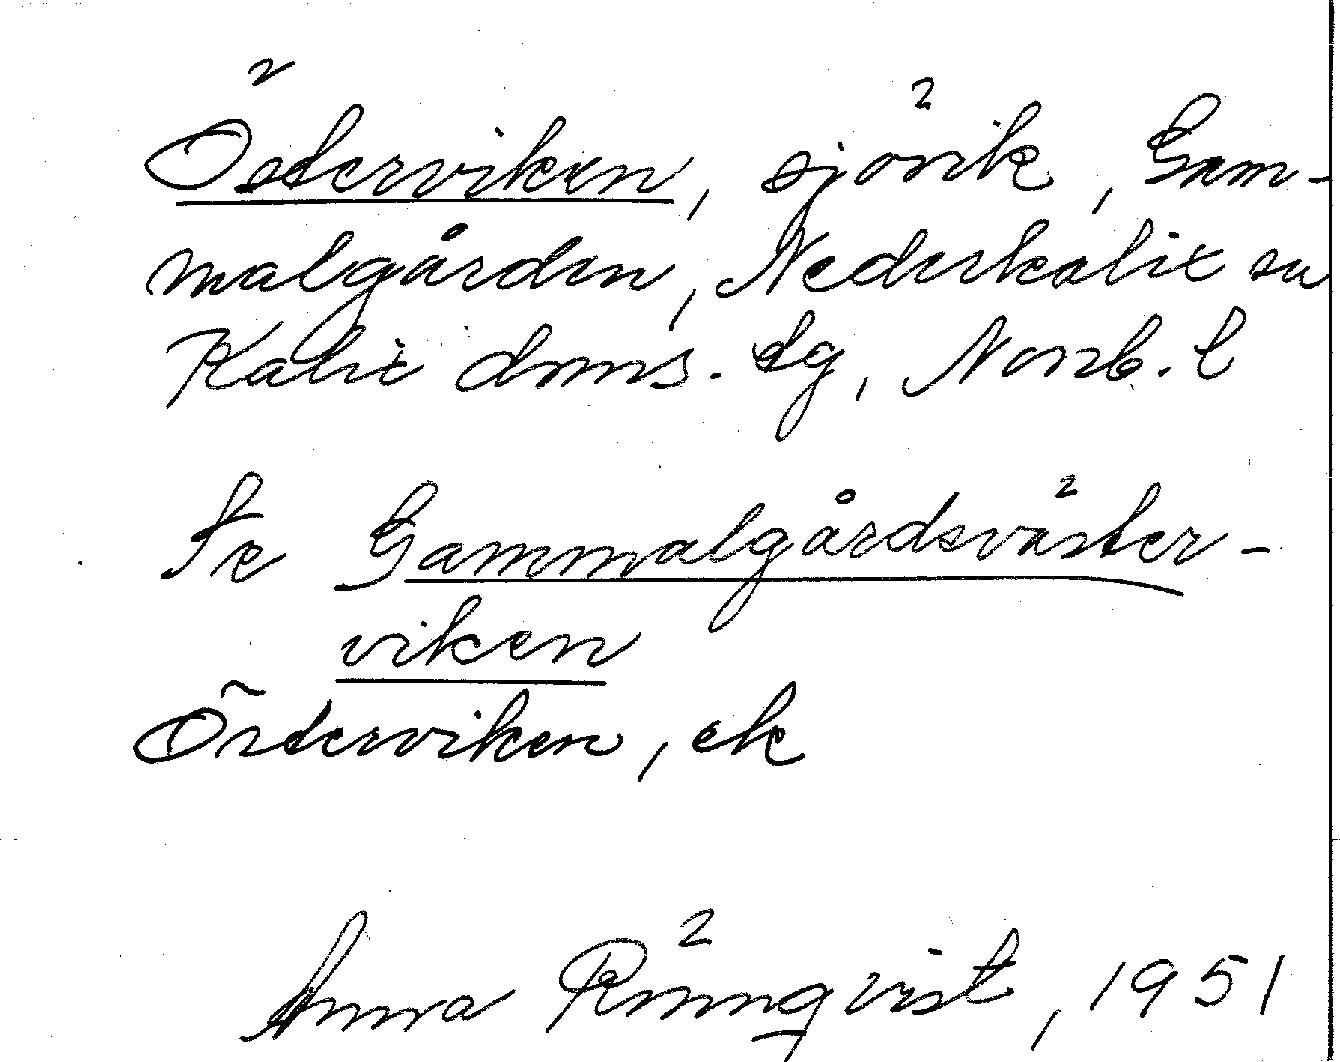 Österviken, sjövik, Gam-
malgården, Nederkalix sn
Kalix doms. dg, Norrb. l
Se Gammalgårdsväster-
viken
Österviken, ek
Anna Rönnqvist, 1951